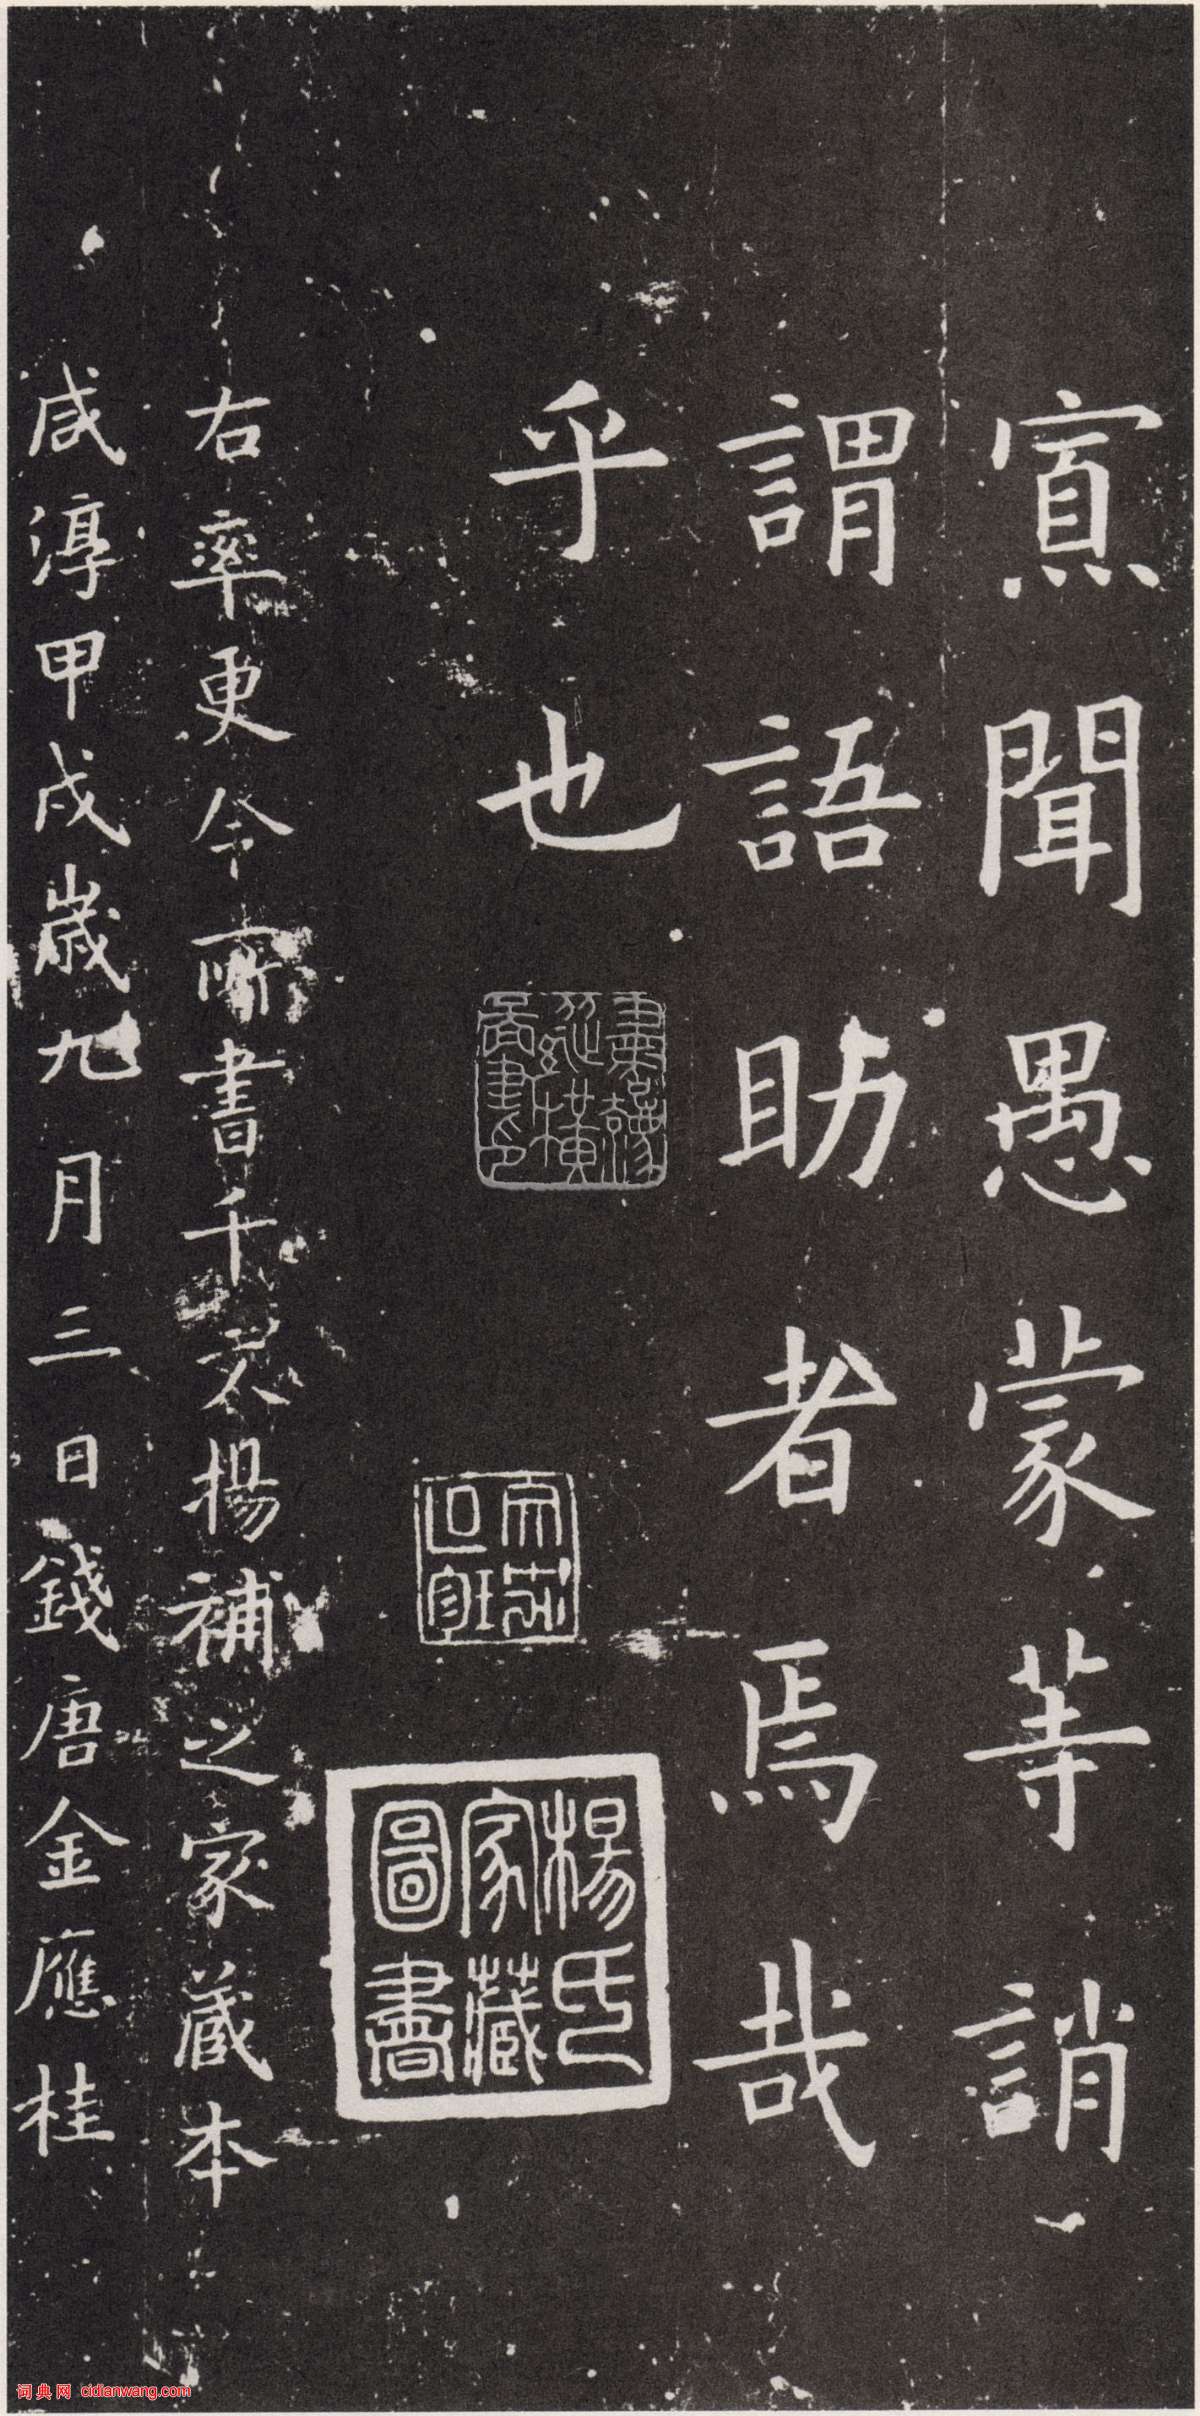 寡聞愚蒙等誚
謂語助者焉哉
乎也
楊氏
家藏
圖書
右率更令所書千文楊補之家藏本
咸淳甲戌歲九月三日錢唐金應桂
词典网 cidianwang.com